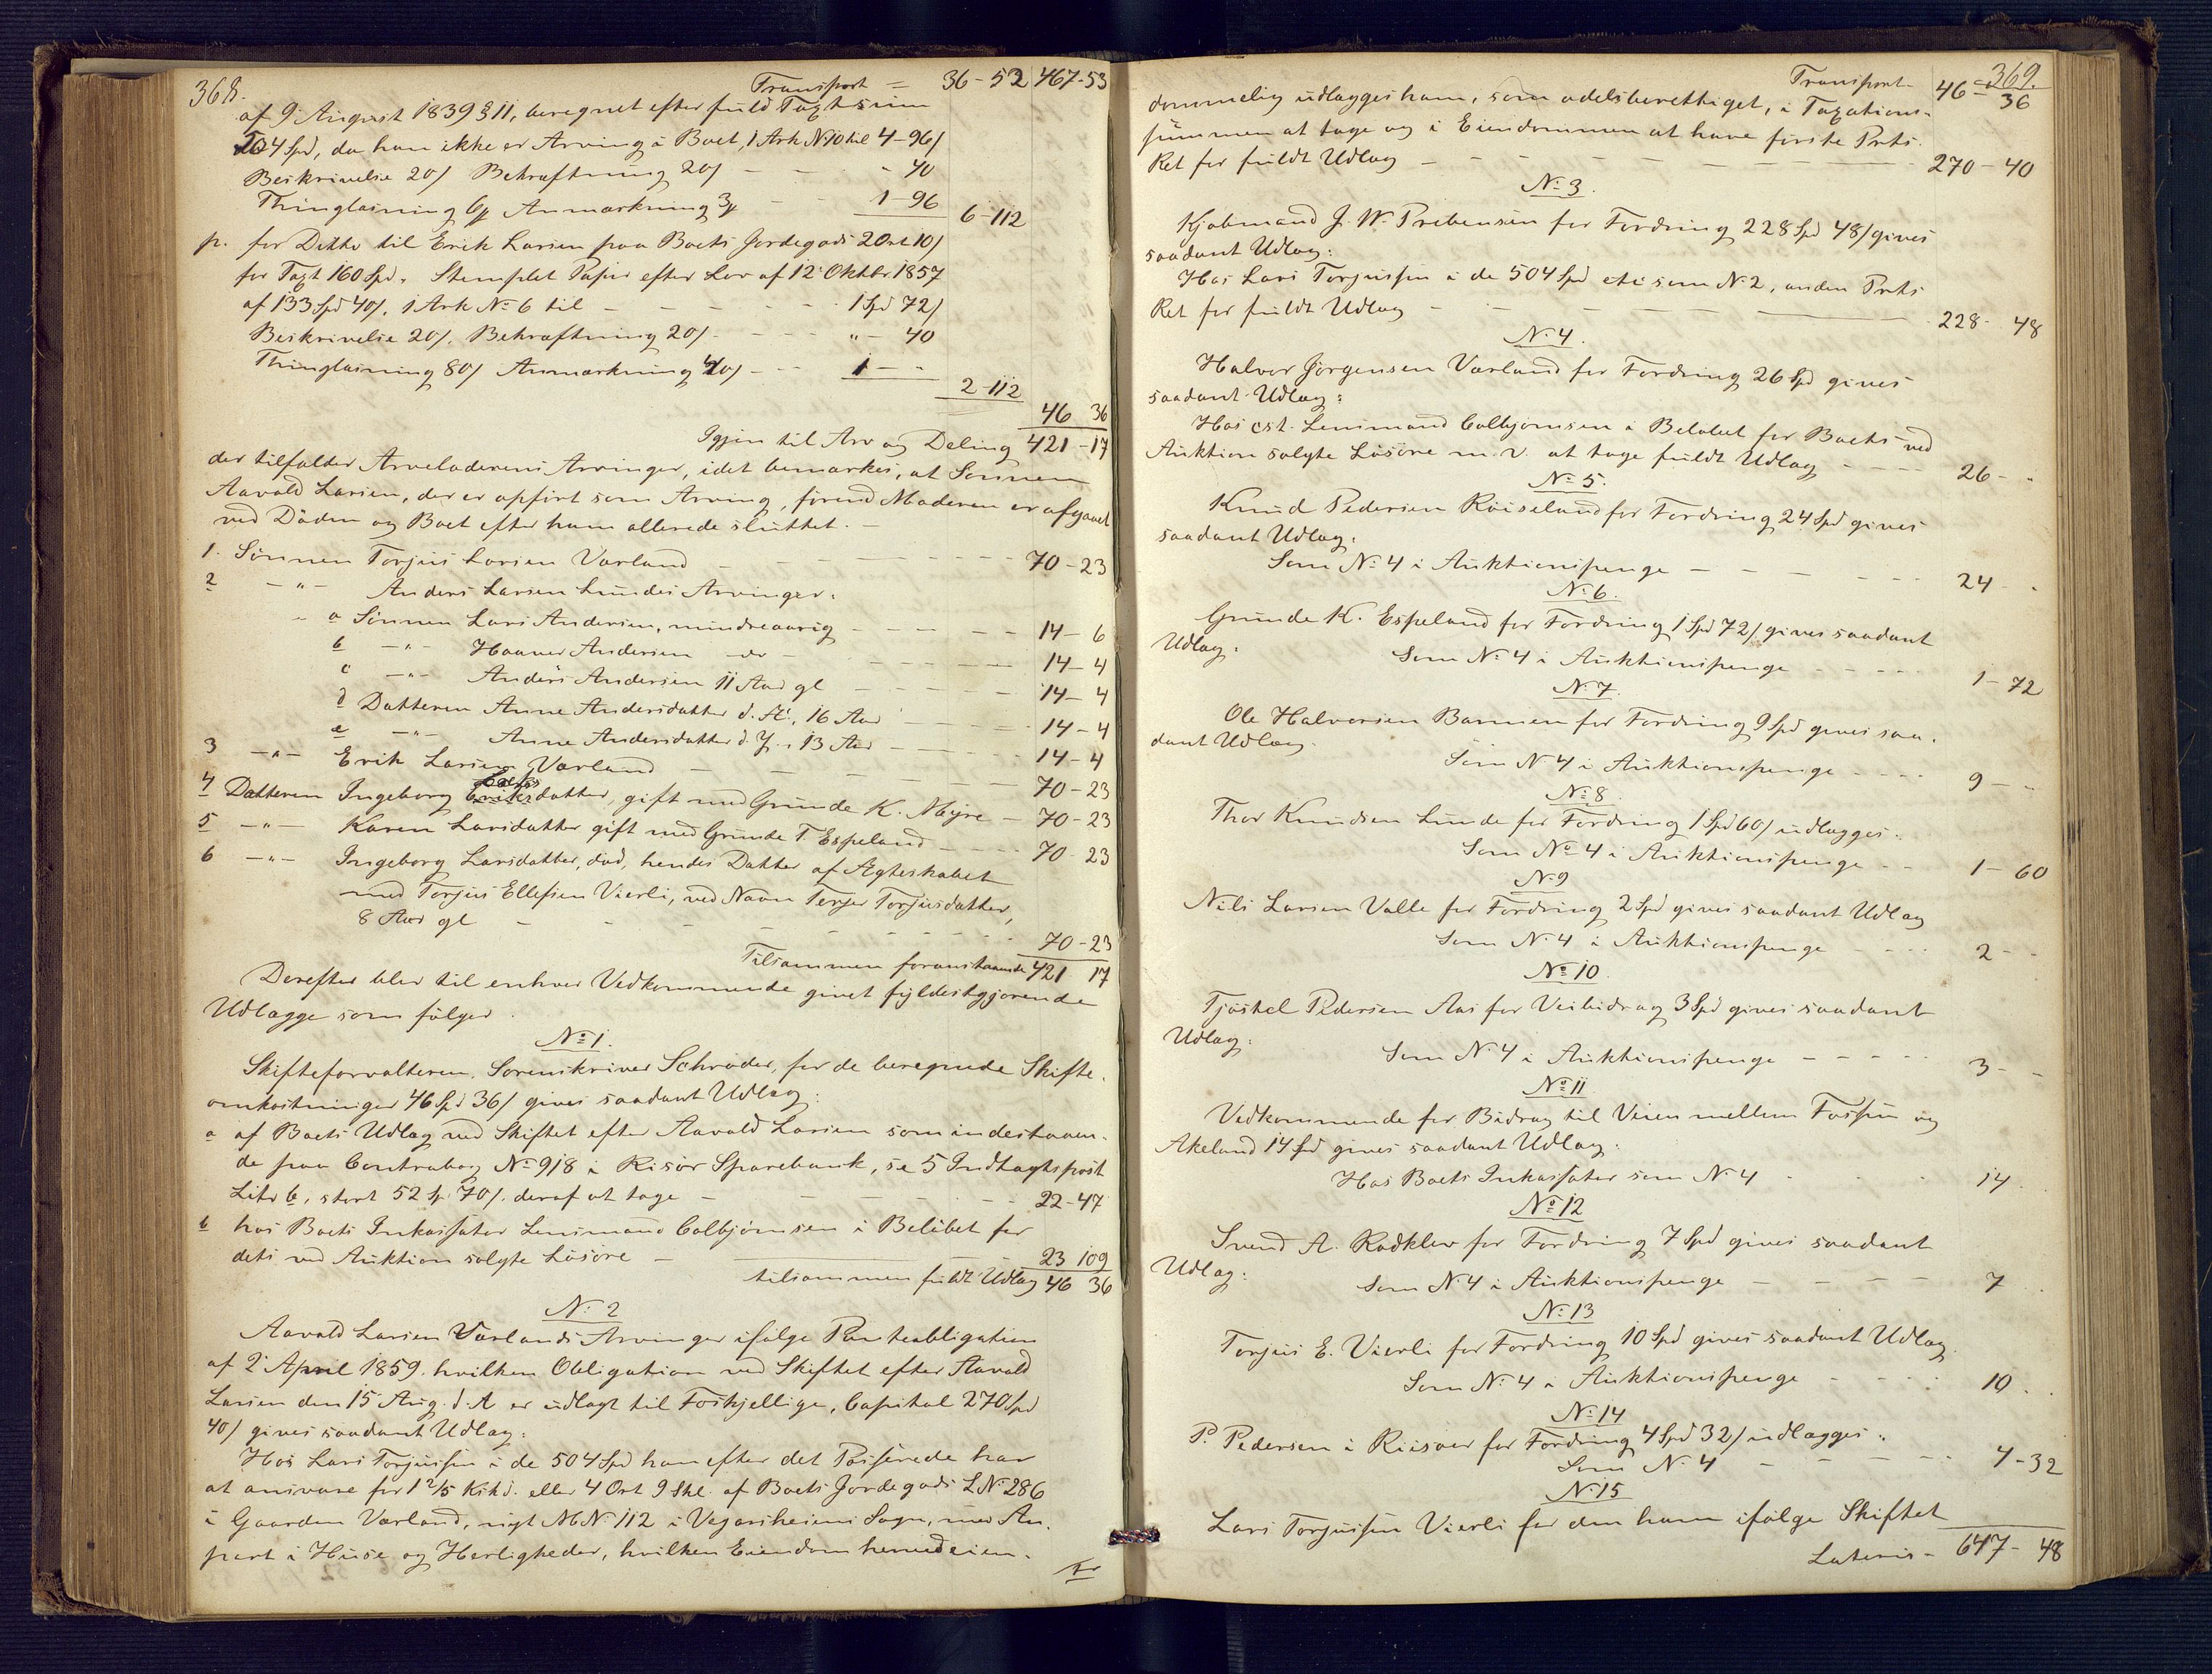 368.
Transport = 36-52 467-53
af 9 August 1839 § 11, beregnet efter fuld Taxtsum
504 Spd, da han ikke er Arving i Boet, 1 Ark No 10 til 4-96/
Beskrivelse 20/ Bekræftning 20/ - - - " 40
Thinglæsning 6 Anmærkning 3 - - 1-96 6-112
p. for Ditto til Erik Larsen paa Boets Jordegods 2 Ort 10/
for Taxt 160 Spd. Stemplet Papir efter Lov af 12 Oktbr 1857
af 133 Spd 40/, 1 Ark No 6 til - - - - 1 Spd 72/
Beskrivelse 20/, Bekræftning 20/. - - - " - 40
Thinglæsning 80/ Anmærkning 40/ - - - 1 - "
2-112
46 36
Igjen til Arv og Deling 421-17
der tilfalder Arveladerens Arvinger, idet bemærkes, at Sønnen
Aavald Larsen, der er opført som Arving, førend Moderen er afgaaet
ved Døden og Boet efter ham allerede sluttet. -
1. Sønnen Torjus Larsen Varland - - - - - 70-23
2 - " - Anders Larsen Lundes Arvinger:
a Sønnen Lars Andersen, mindreaarig - - - - 14-6
b - " - Haaver Andersen - do - - - - 14-4
c - " - Anders Andersen 11 Aar gl - - - - 14-4
d Datteren Anne Andersdatter d. Æ., 16 Aar - - - 14-4
e - " - Anne Andersdatter d. Y., 13 Aar - - - 14-4
3 - " - Erik Larsen Varland - - - - - 70-23
4 Datteren Ingeborg Larsdatter, gift med Grunde K. Møyre - 70-23
5 - " - Karen Larsdatter gift med Grunde T. Espeland - - - 70-23
6 - " - Ingeborg Larsdatter, død, hendes Datter af Ægteskabet
med Torjus Ellefsen Vierli, ved Navn Terjer Torjusdatter,
8 Aar gl - - - - - - 70-23
Tilsammen foranstaaende 421 17
Derefter blev til enhver Vedkommende givet fyldestgjørende
Udlægge som følger.
No 1.
Skifteforvalteren, Sorenskriver Schrøder, for de beregnede Skifte-
omkostninger 46 Spd 36/ gives saadant Udlæg:
a af Boets Udlæg ved Skiftet efter Aavald Larsen som indestaaen-
de paa Contrabog No 918 i Risør Sparebank, se 5 Indtægtspost
Litr b, stort 52 Sp 70/, deraf at tage - - - - 22-47
b hos Boets Inkassator Lensmand Colbjørnsen i Beløbet for
dets ved Auktion solgte Løsøre - - 23 109
tilsammen fuldt Udlæg 46 36
No 2
Aavald Larsen Varlands Arvinger ifølge Panteobligation
af 2 April 1859, hvilken Obligation ved Skiftet efter Aavald
Larsen den 15 Aug. d. A. er udlagt til Forskjellige, Capital 270 Spd
40/ gives saadant Udlæg:
Hos Lars Torjussen i de 504 Spd han efter det Passerede har
at ansvare for 1 2/5 Kskd. eller 4 Ort 9 Skl. af Boets Jordegods L No 286
i Gaarden Varland, nyt M No 112 i Vegarsheiens Sogn, med An-
part i Huse og Herligheder, hvilken Eiendom hermed eien-
369.
Transport 46 - 36
dommelig udlægges ham, som odelsberettiget, i Taxations-
summen at tage og i Eiendommen at have første Prts.
Ret for fuldt Udlæg - - - - - 270-40
No 3.
Kjøbmand J. W. Prebensen for Fordring 228 Spd 48/ gives
saadant Udlæg:
Hos Lars Torjussen i de 504 Spd etc som No 2, anden Prts
Ret for fuldt Udlæg - - - - - 228-48
No 4.
Halvor Jørgensen Varland for Fordring 26 Spd gives
saadant Udlæg:
Hos cst. Lensmand Colbjørnsen i Beløbet for Boets ved
Auktion solgte Løsøre m. v. at tage fuldt Udlæg - - - 26 - "
No 5.
Knud Pedersen Røiseland for Fordring 24 Spd gives
saadant Udlæg:
Som No 4 i Auktionspenge - - - - 24 - "
No 6.
Grunde K. Espeland for Fordring 1 Spd 72/ gives saadant
Udlæg:
Som No 4 i Auktionspenge - - - - 1-72
No 7.
Ole Halvorsen Barmen for Fordring 9 Spd gives saa-
dant Udlæg.
Som No 4 i Auktionspenge - - - 9 - "
No 8.
Thor Knudsen Lunde for Fordring 1 Spd 60/ udlægges:
Som No 4 i Auktionspenge - - 1-60
No 9
Nils Larsen Valle for Fordring 2 Spd gives saadant Udlæg
Som No 4 i Auktionspenge - - - 2 - "
No 10.
Tjøstel Pedersen Aas for Veibidrag 3 Spd gives saadant
Udlæg:
Som No 4 i Auktionspenge - - - - 3 - "
No 11
Vedkommende for Bidrag til Veien mellem Fossen og
Akeland 14 Spd gives saadant Udlæg:
Hos Boets Inkassator som No 4 - - - 14 .
No 12
Svend A. Rødklev for Fordring 7 Spd gives saadant
Udlæg:
Som No 4 i Auktionspenge - - - - 7
No 13
Torjus E. Vierli for Fordring 10 Spd gives saadant Udlæg.
Som No 4 i Auktionspenge - - - - 10 .
No 14
P. Pedersen i Riisøer for Fordring 4 Spd 32/ udlægges:
Som No 4 - - - - - 4-32
No 15
Lars Torjussen Vierli for den ham ifølge Skiftet
Lateris - 647-48